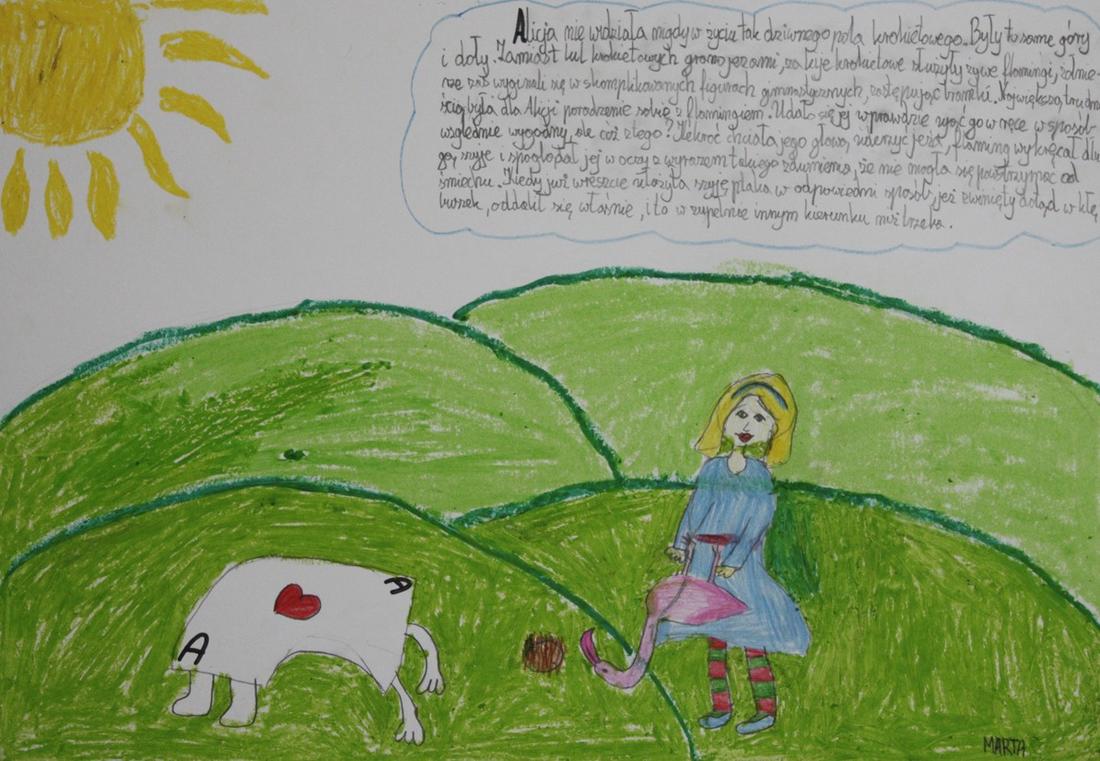 Alicja nie widziała nigdy w życiu tak dziwnego pola krokietowego. Były to same góry
i doły. Zamiast kul krokietowych grano jeżami, za kije krokietowe służyły żywe flamingi, żołnie-
rze zaś wyginali się w skomplikowanych figurach gimnastycznych, zastępując bramki. Największą trudno
ścią była dla Alicji poradzenie sobie z flamingiem. Udało się jej wprawdzie ująć go w ręce w sposób
względnie wygodny, ale cóż z tego? Ilekroć chciała jego głową uderzyć jeża, flaming wykręcał dłu
gą szyję i spoglądał jej w oczy z wyrazem takiego zdumienia, że nie mogła się powstrzymać od
śmiechu. Kiedy już wreszcie ułożyła szyję ptaka w odpowiedni sposób, jeż zwinięty dotąd w kłę
buszek, oddalił się właśnie, i to w zupełnie innym kierunku niż trzeba.
A
A
MARTA